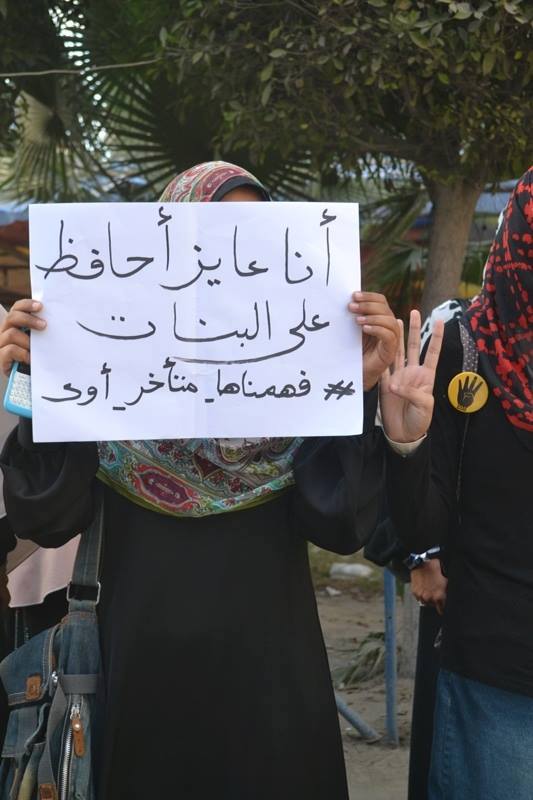 أنا عايز أحافظ
على البنات
# فهمناها_متأخر_أوى